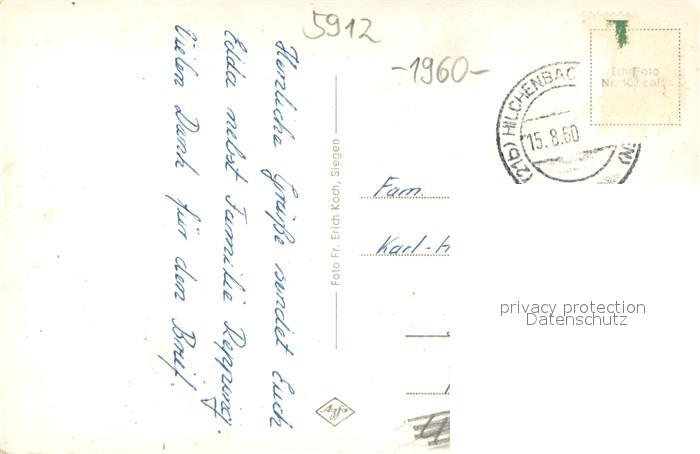 5912
-1960-
Herzliche Grüße sendet Euch
Edda nebst Familie Repping.
Vielen Dank für den Brief.
Foto Fr. Erich Koch, Siegen
Agfa
(21b) HILCHENBAC
15.8.60
Echt Foto
Nr. 102 col
Fam.
Karl-H
privacy protection
Datenschutz